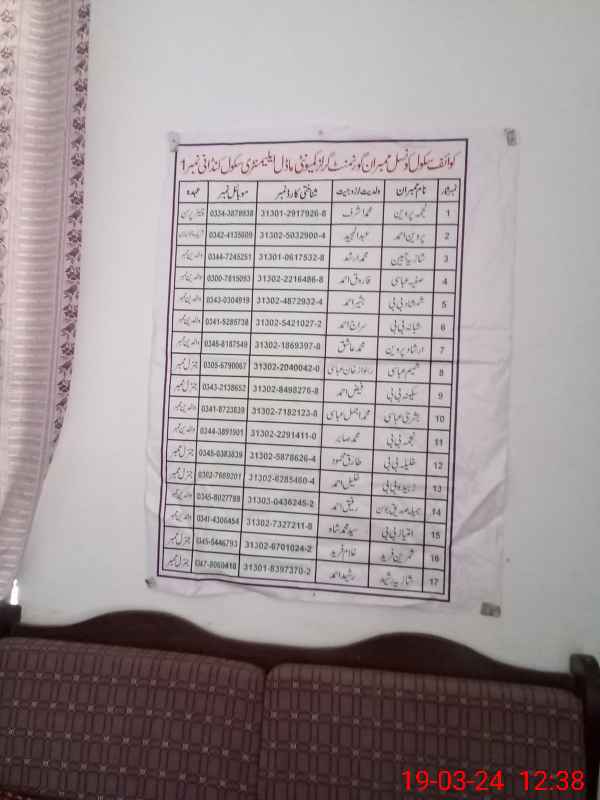 کوائف سکول کونسل ممبران گورنمنٹ گرلز کمیونٹی ماڈل ایلیمنٹری سکول کنڈانی نمبر 1
نمبر شمار نام ممبران ولدیت / زوجیت شناختی کارڈ نمبر موبائل نمبر عہدہ
1 نجمہ پروین محمد اشرف 31301-2917926-8 0334-3879938 چیئر پرسن
2 پروین احمد عبدالمجید 31302-5032900-4 0342-4135609
3 شازیہ محمد ارشد 31301-0617532-8 0344-7245251 والدین ممبر
4 صفیہ عباسی فاروق احمد 31302-2216486-8 0300-7815093 والدین ممبر
5 شمشاد بی بی بشیر احمد 31302-4872932-4 0343-0304919 والدین ممبر
6 شبانہ بی بی سراج احمد 31302-5421027-2 0341-5285738 والدین ممبر
7 ارشاد پروین محمد عاشق 31302-1869397-8 0345-8187549 والدین ممبر
8 شمیم عباسی خان عباسی 31302-2040042-0 0305-6790067 جنرل ممبر
9 سکینہ بی بی فیض احمد 31302-8498276-8 0343-2138652 جنرل ممبر
10 بشریٰ عباسی محمد اجمل عباسی 31302-7182123-8 0341-8723839 والدین ممبر
11 نجمہ بی بی محمد صابر 31302-2291411-0 0344-3891901 والدین ممبر
12 بی بی طارق محمود 31302-5878626-4 0345-0383839 جنرل ممبر
13 زبیدہ بی بی خلیل احمد 31302-6285460-4 0302-7689201 جنرل ممبر
14 جمیلہ صدیق رفیق احمد 31303-0436245-2 0345-8027788 والدین ممبر
15 امتیاز بی بی سید محمد شاہ 31302-7327211-8 0341-4306454 والدین ممبر
16 ثمرین فرید غلام فرید 31302-6701024-2 0345-5446793 جنرل ممبر
17 شازیہ رشید رشید احمد 31301-8397370-2 0347-8060418 جنرل ممبر
19-03-24 12:38